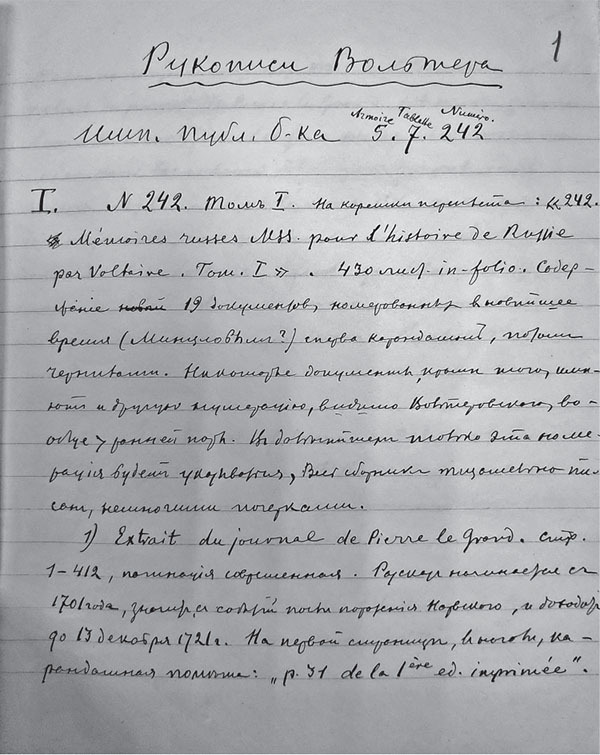 1
Рукописи Вольтера
Armoire Tablette Numéro.
Имп. публ. б-ка 5. 7. 242
I. N 242. Томъ I. На корешкѣ переплета: «242.
Mémoires russes MSS. pour l'histoire de Russie
par Voltaire. Tom. I». 430 лист. in-folio. Содер-
жаніе 19 документовъ, номерованныхъ въ новѣйшее
время (Минцловымъ?) сперва карандашемъ, потомъ
чернилами. Некоторые документы, кромѣ того, имѣ-
ютъ и другую нумерацію, видимо Вольтеровскую, во-
обще ранней поры. Въ дальнѣйшемъ только эта номе-
рація будетъ указываться. Весь сборникъ тщательно пи-
санъ, немногими почерками.
1) Extrait du journal de Pierre le Grand. стр.
1-412, пагинація современная. Разсказъ начинается съ
1701 года, событій послѣ пораженія Нарвскаго, и доходитъ
до 13 декабря 1721 г. На первой страницѣ, внизу, ка-
рандашная помѣта: „p. 31 de la 1ère ed. imprimée".